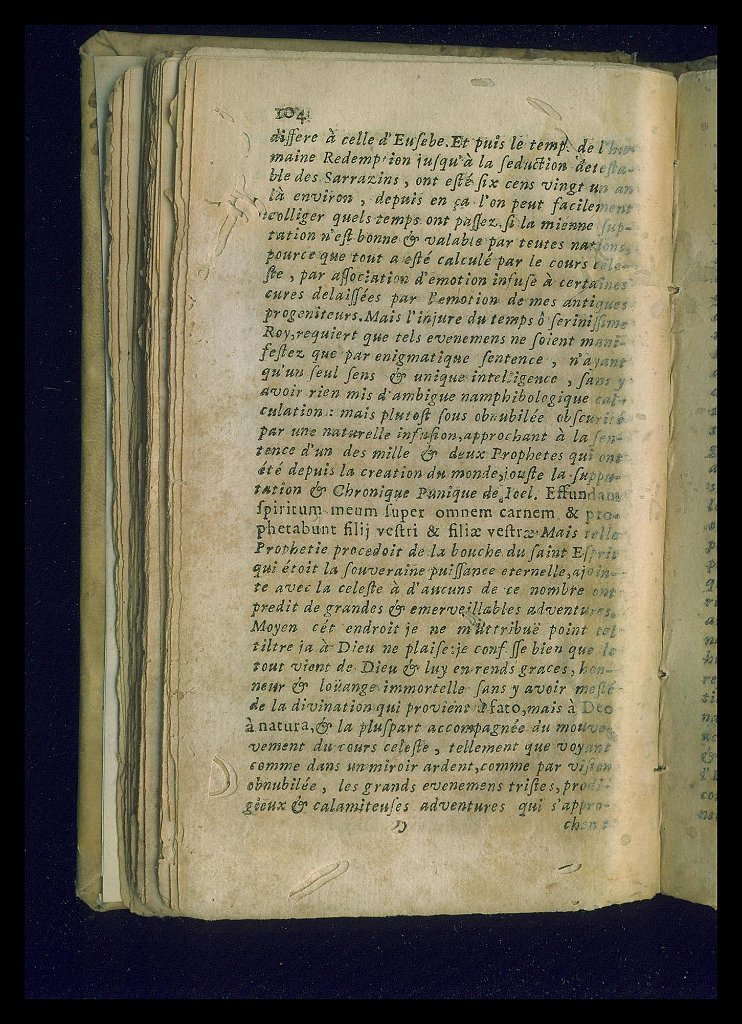 104
differe à celle d'Euſebe. Et puis le temp. de l'hu-
maine Redemp ion juſqu'à la ſeduction deteſta-
ble des Sarrazins, ont eſté ſix cens vingt un an
là environ, depuis en ça l'on peut facilement
colliger quels temps ont paſſez, ſi la mienne ſup-
tation n'eſt bonne & valable par toutes nations,
pource que tout a eſté calculé par le cours cele-
ſte, par aſſociation d'emotion infuſe à certaines
cures delaiſſées par l'emotion de mes antiques
progeniteurs. Mais l'injure du temps ô ſeriniſſime
Roy, requiert que tels evenemens ne ſoient mani-
feſtez que par enigmatique ſentence, n'ayant
qu'un ſeul ſens & unique intelligence, ſans y
avoir rien mis d'ambigue namphibologique cal-
culation: mais plutoſt ſous obnubilée obſcurité
par une naturelle infuſion, approchant à la ſen-
tence d'un des mille & deux Prophetes qui ont
été depuis la creation du monde, jouſte la ſuppu-
tation & Chronique Punique de Joel. Effundam
ſpiritum meum ſuper omnem carnem & pro-
phetabunt filij veſtri & filiæ veſtræ Mais telle
Prophetie procedoit de la bouche du ſaint Eſprit
qui étoit la ſouveraine puiſſance eternelle, ajoin-
te avec la celeſte à d'aucuns de ce nombre ont
predit de grandes & emerveillables adventures.
Moyen cét endroit je ne m'attribuë point tel
tiltre ja à Dieu ne plaiſe: je confeſſe bien que le
tout vient de Dieu & luy en rends graces, hon-
neur & loüange immortelle ſans y avoir meſlé
de la divination qui provient à fato, mais à Deo
à natura, & la pluſpart accompagnée du mouve-
vement du cours celeſte, tellement que voyant
comme dans un miroir ardent, comme par viſion
obnubilée, les grands evenemens triſtes, prodi-
gieux & calamiteuſes adventures qui s'appro-
chent